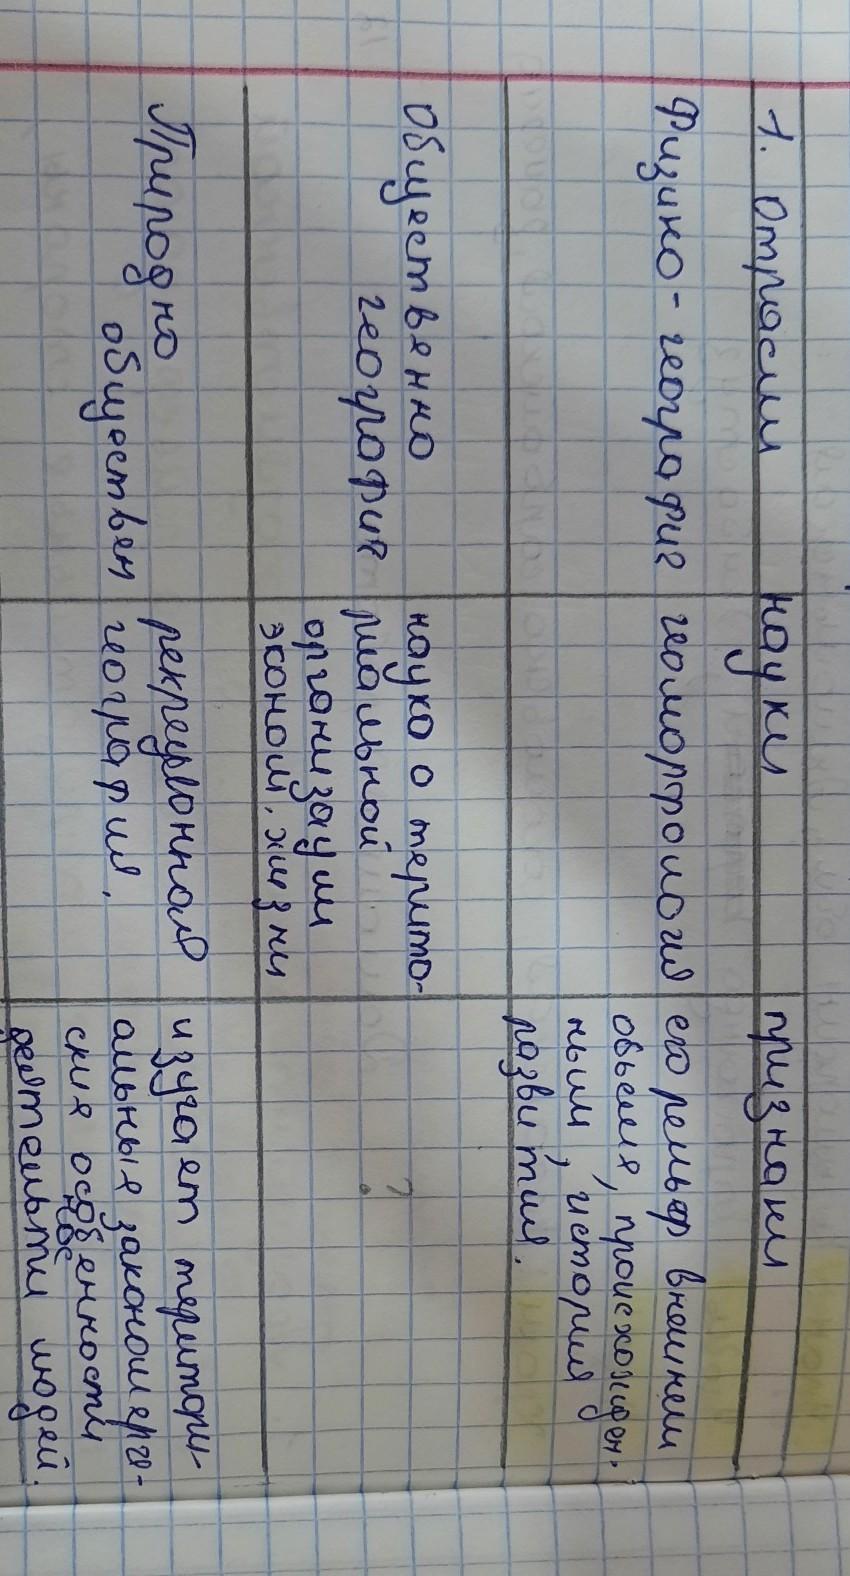 1. Отрасли науки признаки
Физико-географиг геоморфология его рельеф внешнем
обьемя, происхожден.
ным, история
развития.
Обществвенно
география
науко о террито-
риальной
организации
эконом. жизни
?
Природно
обществен
рекреционная
география.
изучает территори-
альные закономерге-
ские особенности
ное
деятельти людей.